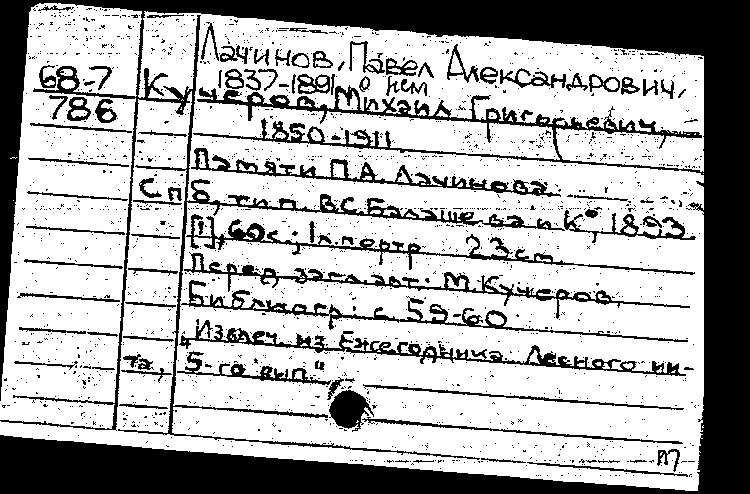 Лачинов, Павел Александрович,
68-7 1837-1891 о нем
786 Кучеров, Михаил Григорьевич,
1850-1911
Памяти П.А. Лачинова.
Спб, тип. В.С. Балашева и К°, 1893
[1], 60 с.; 1 л. портр 23 см.
Перед загл. авт.: М. Кучеров.
Библиогр.: с 59-60
„Извлеч. из Ежегодника Лесного ин-
та, 5-го вып."